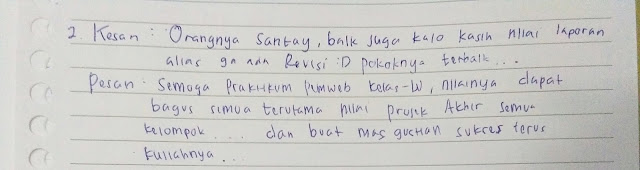 2. Kesan : Orangnya Santay, baik juga kalo kasih nilai laporan
alias ga ada Revisi :D pokoknya terbaik...
Pesan : Semoga Praktikum Pemweb kelas-W, nilainya dapat
bagus semua terutama nilai Projek Akhir semua
kelompok.... dan buat mas gustian sukses terus
kuliahnya...